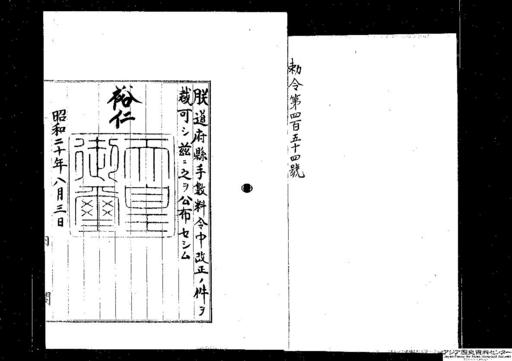 勅令第四百五十四號
朕道府縣手數料令中改正ノ件ヲ
裁可シ茲ニ之ヲ公布セシム
裕仁
天皇御璽
昭和二十年八月三日
内閣
アジア歴史資料センター